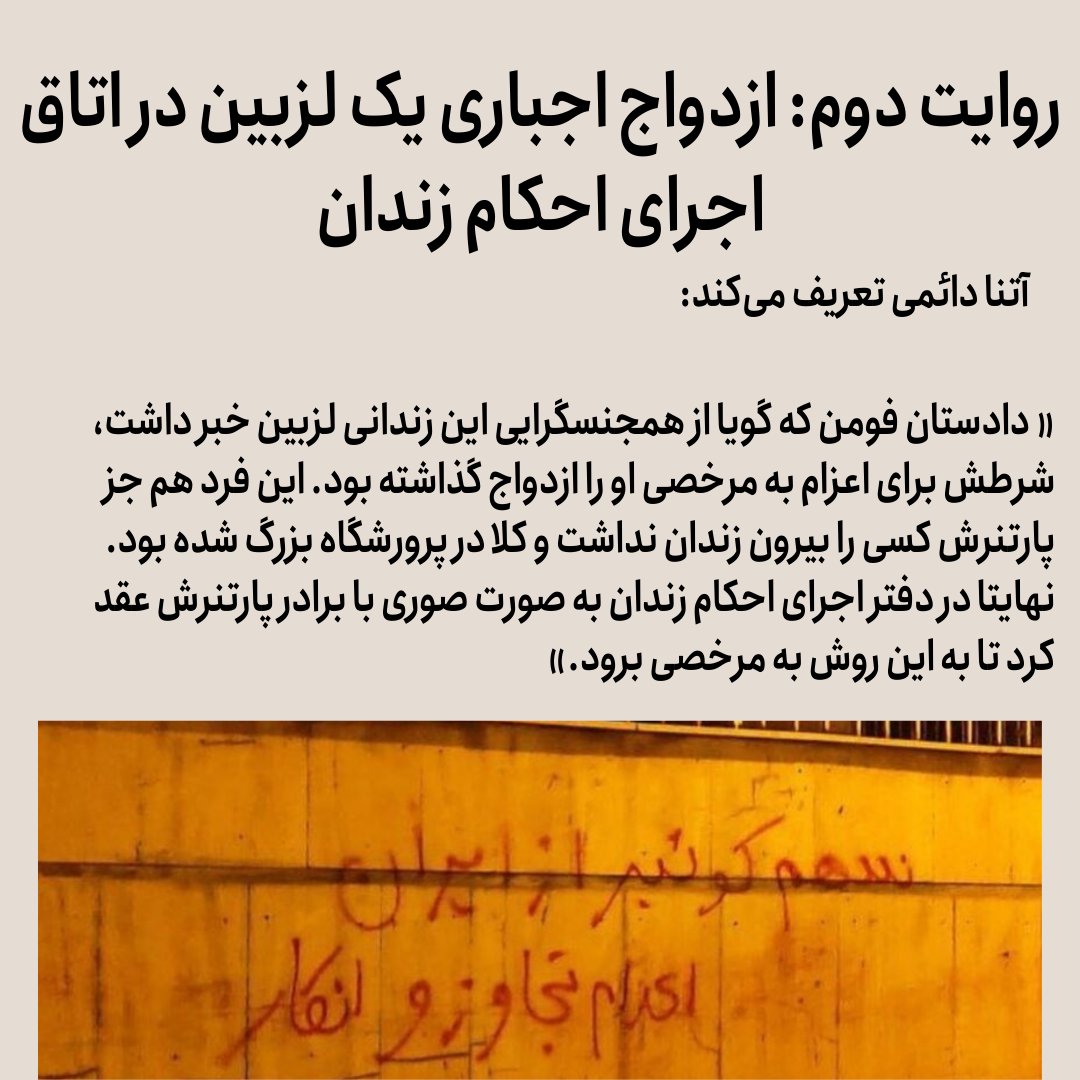 روایت دوم: ازدواج اجباری یک لزبین در اتاق
اجرای احکام زندان
آتنا دائمی تعریف می‌کند:
«دادستان فومن که گویا از همجنسگرایی این زندانی لزبین خبر داشت،
شرطش برای اعزام به مرخصی او را ازدواج گذاشته بود. این فرد هم جز
پارتنرش کسی را بیرون زندان نداشت و کلا در پرورشگاه بزرگ شده بود.
نهایتا در دفتر اجرای احکام زندان به صورت صوری با برادر پارتنرش عقد
کرد تا به این روش به مرخصی برود.»
سهم کوئیر از ایران
اعدام تجاوز و انکار